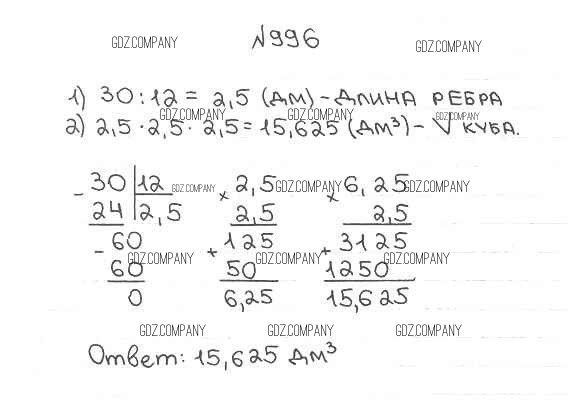 №996
GDZ.COMPANY GDZ.COMPANY
1) 30:12 = 2,5 (дм) - длина ребра
GDZ.COMPANY GDZ.COMPANY GDZ.COMPANY
2) 2,5 · 2,5 · 2,5 = 15,625 (дм³) - V куба.
- 30 12 GDZ.COMPANY × 2,5 GDZ.COMPANY × 6,25 GDZ.COMPANY
24 2,5 2,5 2,5
- 60 + 125 + 3125
GDZ.COMPANY GDZ.COMPANY GDZ.COMPANY
60 50 1250
0 6,25 15,625
GDZ.COMPANY GDZ.COMPANY GDZ.COMPANY
Ответ: 15,625 дм³